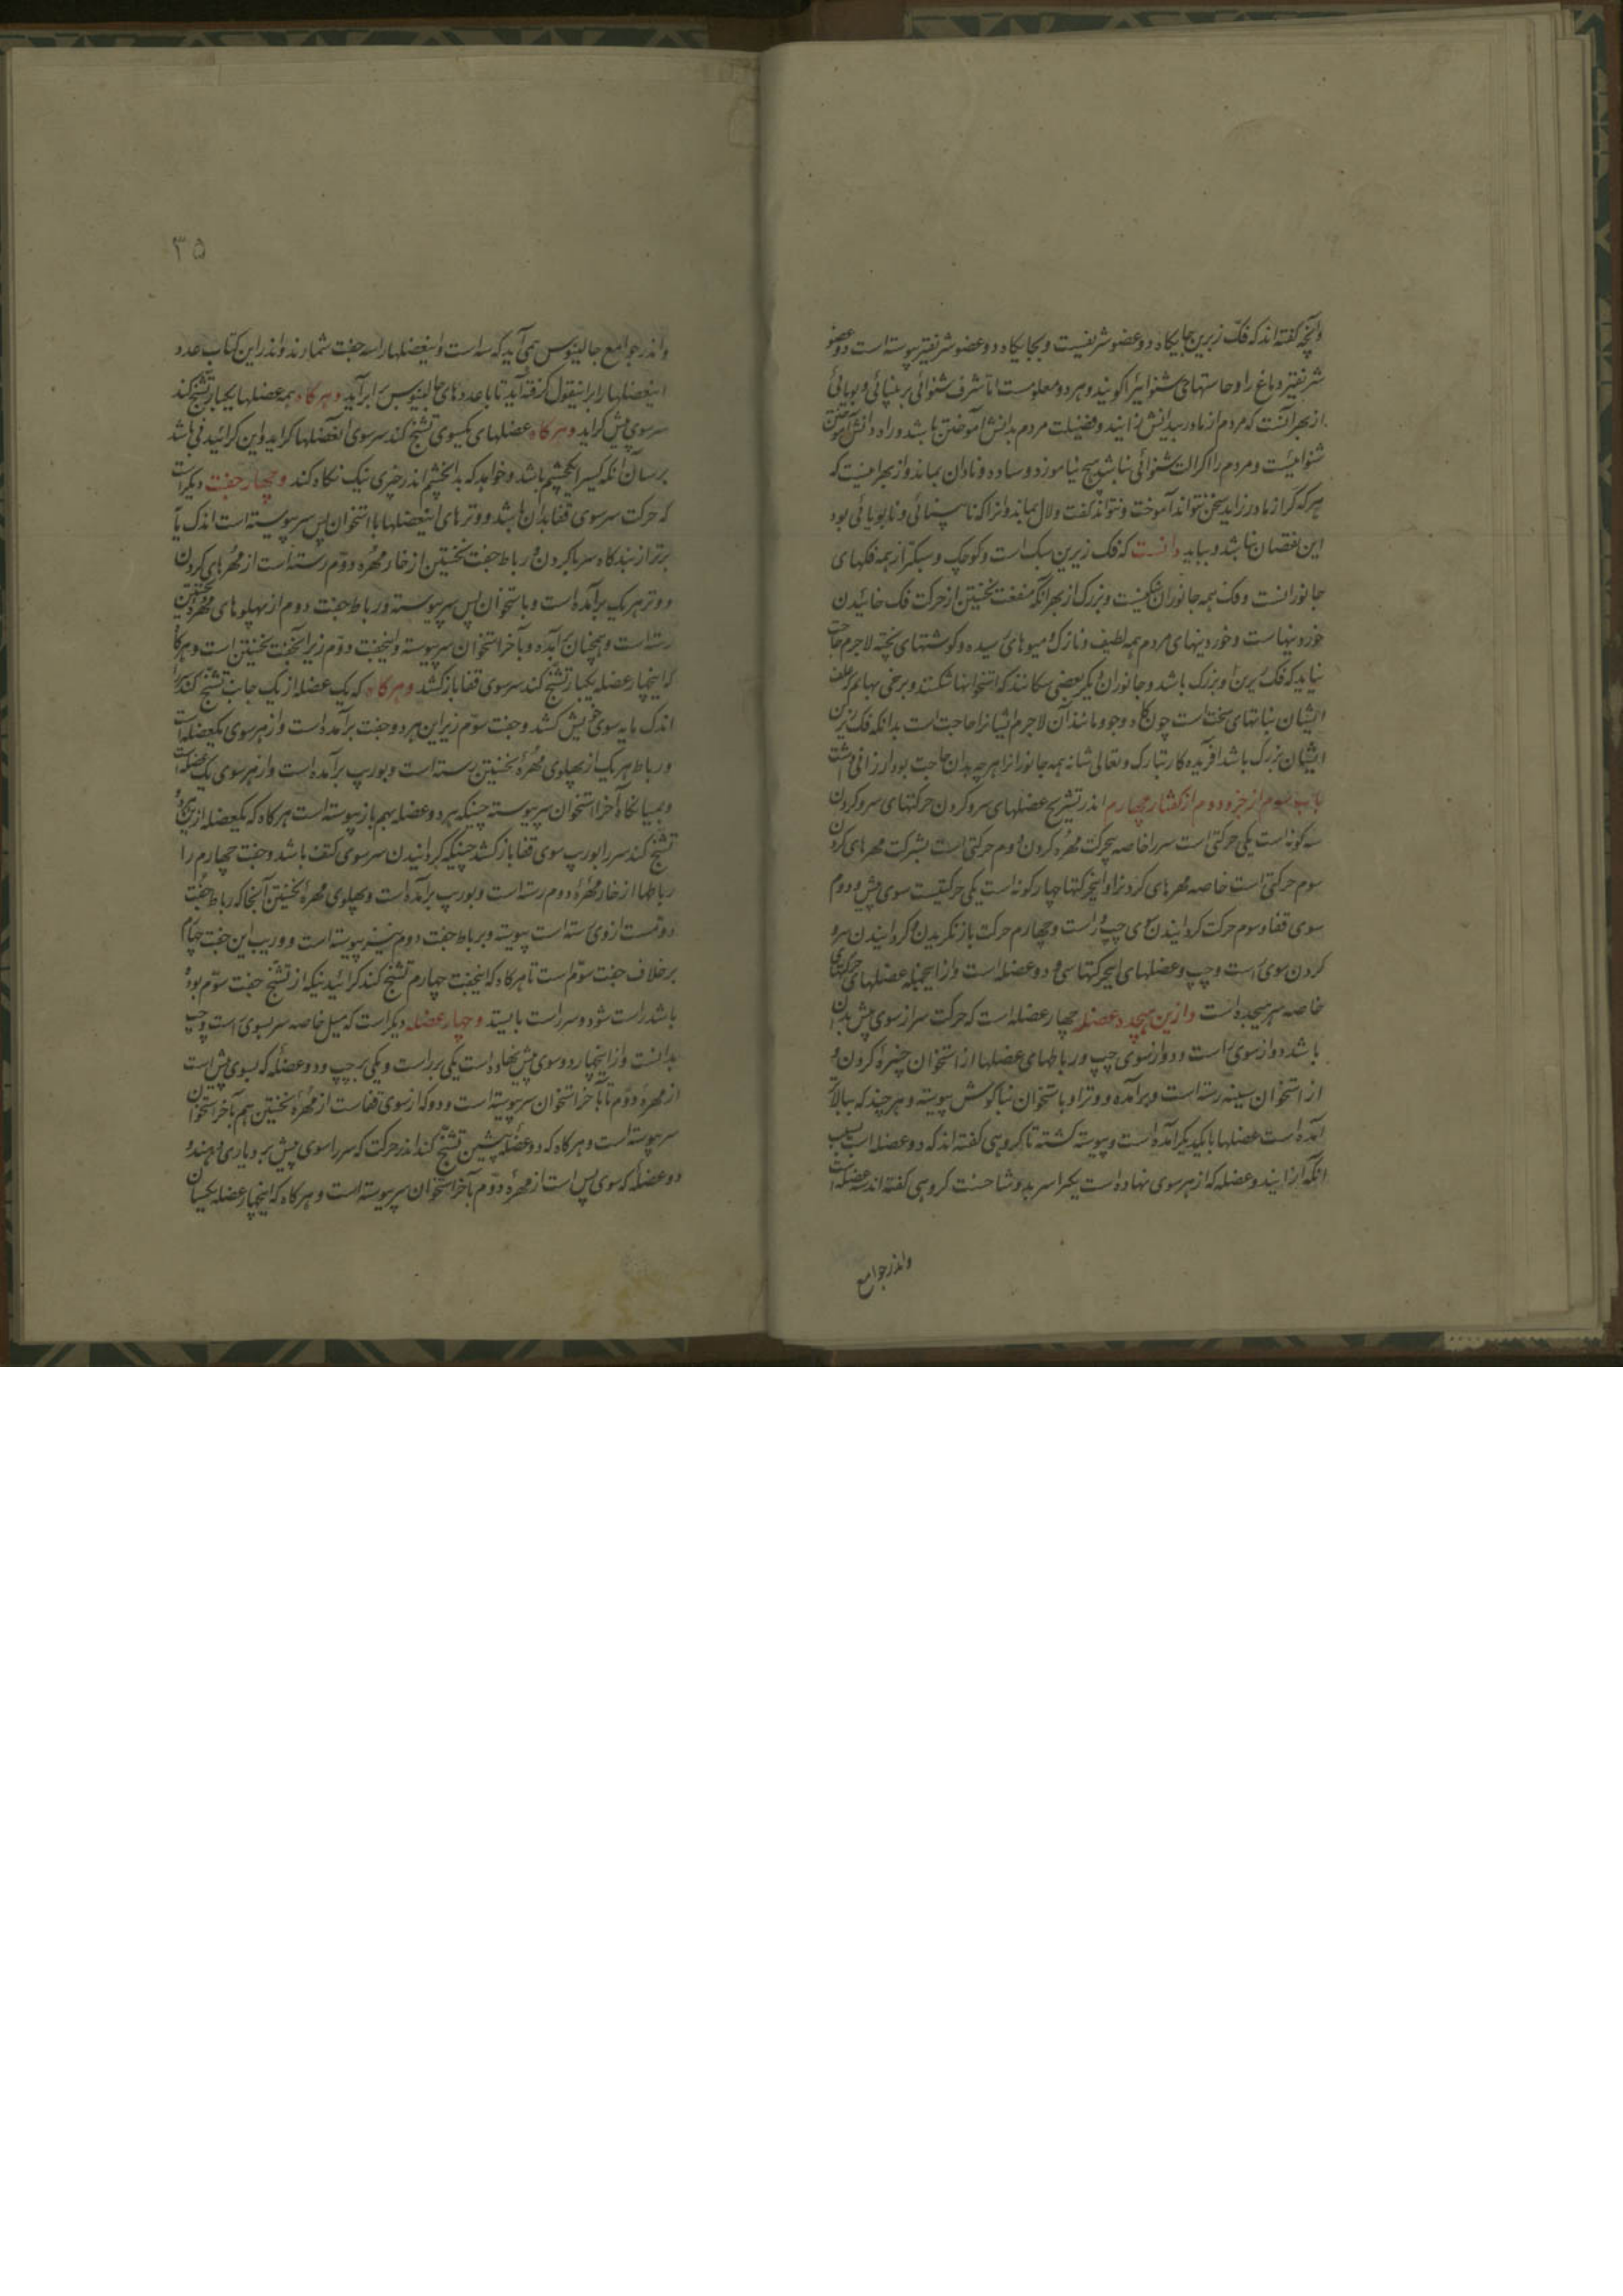 وآنچه گفته‌اند که فک زبرین جایگاه دو عضو شریفست و بجایگاه دو عضو شریفتر پیوسته است دو عضو
شریفتر دماغ را و حاستهای شنوائیرا گویند و هر دو معلومست اما شرف شنوائی بر بینائی و بویائی
از بهر آنست که مردم از مادر بیدانش زایند و فضیلت مردم بدانش آموختن باشد و راه دانش آموختن
شنوائیست و مردم را اگر آلت شنوائی نباشد هیچ نیاموزد و ساده و نادان بماند و از بهر اینست که
هر که کر از مادر زاید سخن نتواند آموخت و نتواند گفت و لال بماند و آنرا که نابینائی و نابویائی بود
این نقصان نباشد و بباید دانست که فک زیرین سبک است و کوچک و سبکتر از همه فکهای
جانورانست و فک همه جانوران سنگینست و بزرگ از بهر آنکه منفعت نخستین از حرکت فک خائیدن
خوردنیهاست و خوردنیهای مردم همه لطیف و نازک و میوهای رسیده و گوشتهای پخته لاجرم حاجت
نیاید که فک زیرین او بزرگ باشد و جانوران دیگر بعضی سگانند که استخوانها شکنند و برخی بهایم که علف
ایشان نباتهای سخت است چون کاه و جو و مانند آن لاجرم ایشانرا حاجت است بدانکه فک زیرین
ایشان بزرگ باشد آفریدگار تبارک و تعالی شانه همه جانورانرا هر چه بدان حاجت بود ارزانی داشت
باب سوم از جزو دوم از گفتار چهارم اندر تشریح عضلهای سر و گردن حرکتهای سر و گردن
سه گونه است یکی حرکتی است سر را خاصه بیحرکت مهره گردن دوم حرکتی است بشرکت مهرهای گردن
سوم حرکتی است خاصه مهرهای گردنرا و این حرکتها چهار گونه است یکی حرکتیست سوی پیش و دوم
سوی قفا و سوم حرکت گردانیدن سوی چپ و راست و چهارم حرکت بازنگریدن و گردانیدن سر و
گردن سوی راست و چپ و عضلهای این حرکتها سی و دو عضله است و از اینجمله عضلهای حرکتهای
خاصه سر هیجده است و ازین هیجده عضله چهار عضله است که حرکت سر از سوی پیش بدان
باشد دو از سوی راست و دو از سوی چپ و رباطهای عضلها از استخوان چنبره گردن و
از استخوان سینه رسته است و برآمده و وتر او باستخوان بناگوش پیوسته و هر چند که ببالاتر
آمده است عضلها بایکدیگر آمده است و پیوسته گشته تا گروهی گفته‌اند که دو عضله است بسبب
آنکه از ایندو عضله که از هر سوی نهاده است یکرا سر بدو شاخست گروهی گفته‌اند سه عضله است
واندر جوامع
۳۵
واندر جوامع جالینوس همی‌آید که سه است و اینعضلها را سه جفت شمارند و اندر این کتاب عدد
اینعضلها را بر اینقول گرفته آید تا با عددهای جالینوس برابر آید و هرگاه همه عضلها یکبار تشنج کند
سر سوی پیش گراید و هرگاه عضلهای یکسوی تشنج کند سر سوی آنعضلها گراید و این گرائیدنی باشد
برسان آنکه کسیرا یکچشم باشد و خواهد که بدان چشم اندر چیزی نیک نگاه کند و چهار جفت دیگر است
که حرکت سر سوی قفا بدان باشد و وترهای اینعضلها با استخوان پس سر پیوسته است اندک مایه
برتر از بندگاه سر با گردن و رباط جفت نخستین از خار مهره دوم رسته است از مهرهای گردن
و وتر هر یک برآمده است و باستخوان پس سر پیوسته و رباط جفت دوم از پهلوهای مهره نخستین
رسته است و همچنان برآمده و بآخر استخوان سر پیوسته و اینجفت دوم زیر آنجفت نخستین است و هرگاه
که اینچهار عضله یکبار تشنج کند سر سوی قفا بازکشد و هرگاه که یک عضله از یک جانب تشنج کند سر را
اندک مایه سوی خویش کشد و جفت سوم زیر این هر دو جفت برآمده است و از هر سوی یکعضله است
و رباط هر یک از پهلوی مهره نخستین رسته است و بوریب برآمده است و از هر سوی یک عضله است
و بمیانگاه آخر استخوان سر پیوسته چنانکه هر دو عضله بهم باز پیوسته است هرگاه که یکعضله از این هر دو
تشنج کند سر را بوریب سوی قفا بازکشد چنانکه گردانیدن سر سوی کتف باشد و جفت چهارم را
رباطها از خار مهره دوم رسته است و بوریب برآمده است و پهلوی مهره نخستین آنجا که رباط جفت
دومست از وی رسته است پیوسته و برباط جفت دوم نیز پیوسته است و وریب این جفت چهارم
برخلاف جفت سوم است تا هرگاه که اینجفت چهارم تشنج کند گرائیدنیکه از تشنج جفت سوم بوده
باشد راست شود و سر راست بایستد و چهار عضله دیگر است که میل خاصه سر بسوی راست و چپ
بدانست و از اینچهار دو سوی پیش نهاده است یکی بر راست و یکی بر چپ و دو عضله که بسوی پیش است
از مهره دوم تا بآخر استخوان سر پیوسته است و دو که از سوی قفاست از مهره نخستین هم بآخر استخوان
سر پیوسته است و هرگاه که دو عضله پیشین تشنج کند اندر حرکت که سر را سوی پیش بود یاری دهند و
دو عضله که سوی پس است از مهره دوم بآخر استخوان سر پیوسته است و هرگاه که اینچهار عضله یکسان